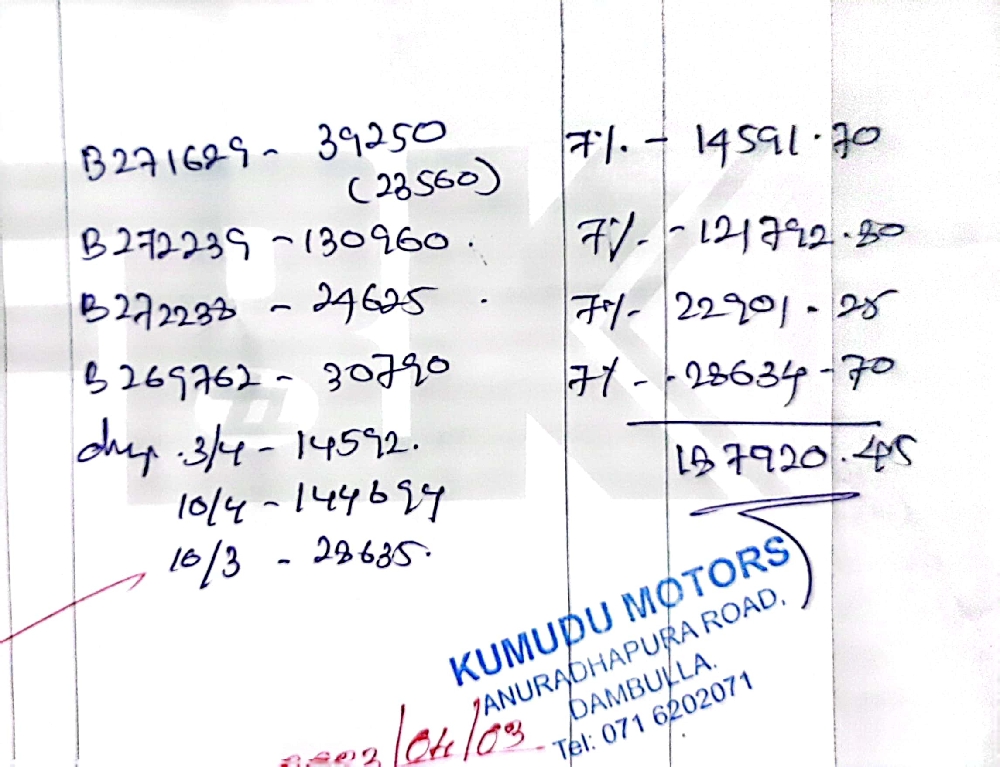 B271629 - 39250 7% - 14591.70
(23560)
B272239 - 130960. 7% - 121792.80
B272238 - 24625. 7% - 22901.25
B269762 - 30790 7% - 28634-70
chq. 3/4 - 14592. 187920.45
10/4 - 144694
10/3 - 28635.
KUMUDU MOTORS
ANURADHAPURA ROAD,
DAMBULLA.
Tel: 071 6202071
/04/03